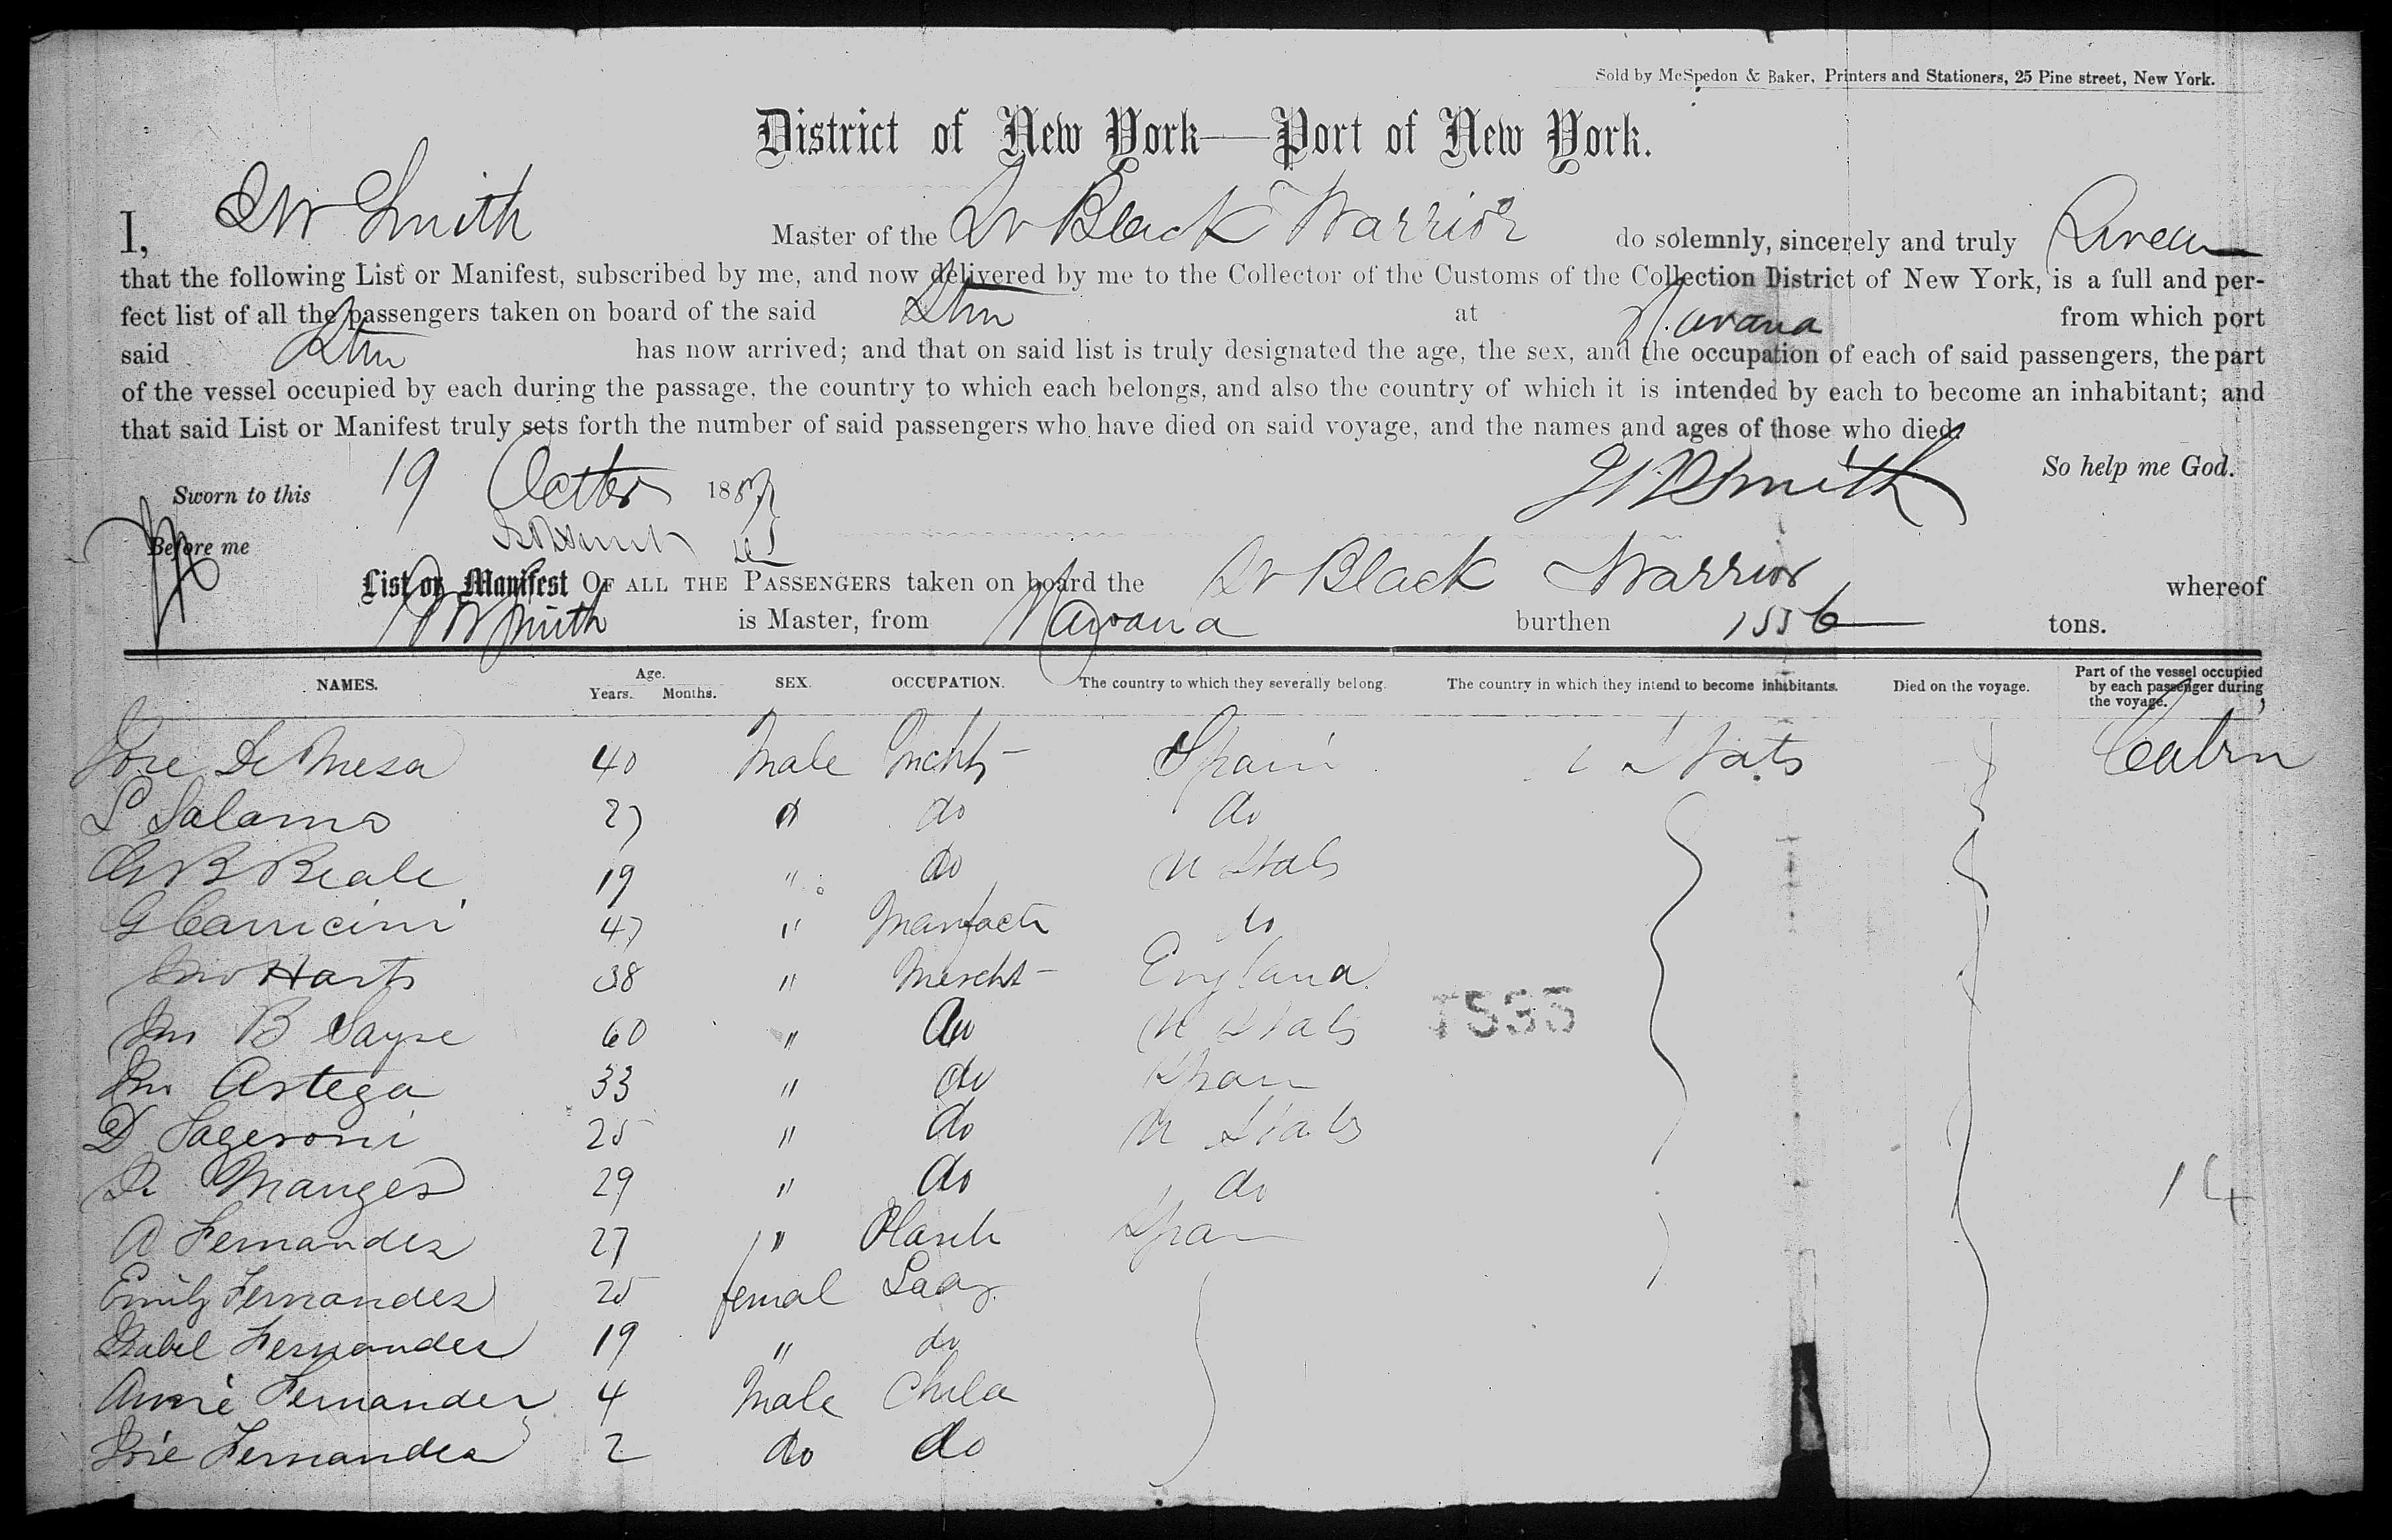 Sold by McSpedon & Baker, Printers and Stationers, 25 Pine street, New York.
District of New York—Port of New York.
I, Smith Master of the Black Warrior do solemnly, sincerely and truly Swear
that the following List or Manifest, subscribed by me, and now delivered by me to the Collector of the Customs of the Collection District of New York, is a full and per-
fect list of all the passengers taken on board of the said Stm at Havana from which port
said Stm has now arrived; and that on said list is truly designated the age, the sex, and the occupation of each of said passengers, the part
of the vessel occupied by each during the passage, the country to which each belongs, and also the country of which it is intended by each to become an inhabitant; and
that said List or Manifest truly sets forth the number of said passengers who have died on said voyage, and the names and ages of those who died.
So help me God.
Sworn to this 19 1857 Smith
Before me
List or Manifest OF ALL THE PASSENGERS taken on board the Black Warrior whereof
Smith is Master, from Havana burthen 1556 tons.
NAMES. Age. Years. Months. SEX. OCCUPATION. The country to which they severally belong. The country in which they intend to become inhabitants. Died on the voyage. Part of the vessel occupied by each passenger during the voyage.
Jose De Mesa 40 Male Mcht Spain U Stats Cabin
S Salamo 27 do do
B Beale 19 " do U Stats
G Carricini 47 " do
Jno Harts 38 " Mercht England
Jno B Sayre 60 " do U Stats
Jno Artega 33 " do Span
D Sageroni 25 " do U Stats
Manges 29 " do do 14
A Fernandez 27 " Plantr Span
Emily Fernandez 25 femal Lady
Isabel Fernandez 19 " do
Fernandez 4 Male Child
Jose Fernandez 2 do do